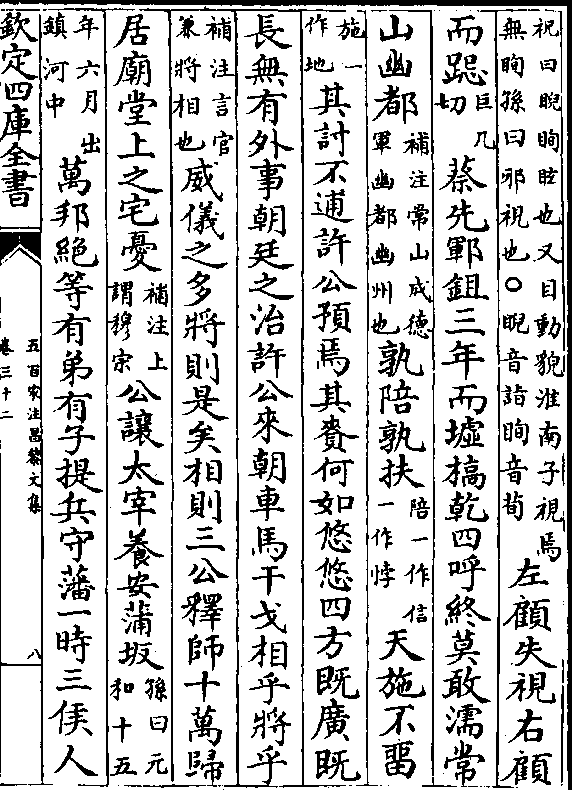 祝曰睨眴眩也又目動貌淮南子視焉
無眴孫曰邪視也○睨音詣眴音荀
左顧失視右顧
而跽巨几切蔡先鄆鉏三年而墟槁乾四呼終莫敢濡常
山幽都補注常山成德軍幽都幽州也孰陪孰扶陪一作信一作悖天施不留
施一作地其討不逋許公預焉其賚何如悠悠四方既廣既
長無有外事朝廷之治許公來朝車馬干戈相乎將乎
補注言官兼將相也威儀之多將則是矣相則三公釋師十萬歸
居廟堂上之宅憂補注上謂穆宗公讓太宰養安蒲坂孫曰元和十五
年六月出鎮河中萬邦絕等有弟有子提兵守藩一時三侯人
欽定四庫全書
五百家注昌黎文集
卷三十二
八